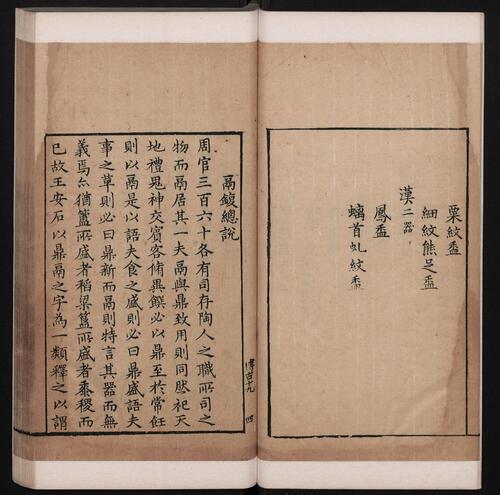 粟紋盉
細紋熊足盉
漢二器
鳳盉
螭首虬紋盉
鬲鍑總說
周官三百六十各有司存陶人之職所司之
物而鬲居其一夫鬲與鼎致用則同然祀天
地禮鬼神交賓客脩異饌必以鼎至於常飪
則以鬲是以語夫食之盛則必曰鼎盛語夫
事之革則必曰鼎新而鬲則特言其器而無
義焉亦猶簠所盛者稻粱簋所盛者黍稷而
已故王安石以鼎鬲之字為一類釋之以謂
博古十九
四